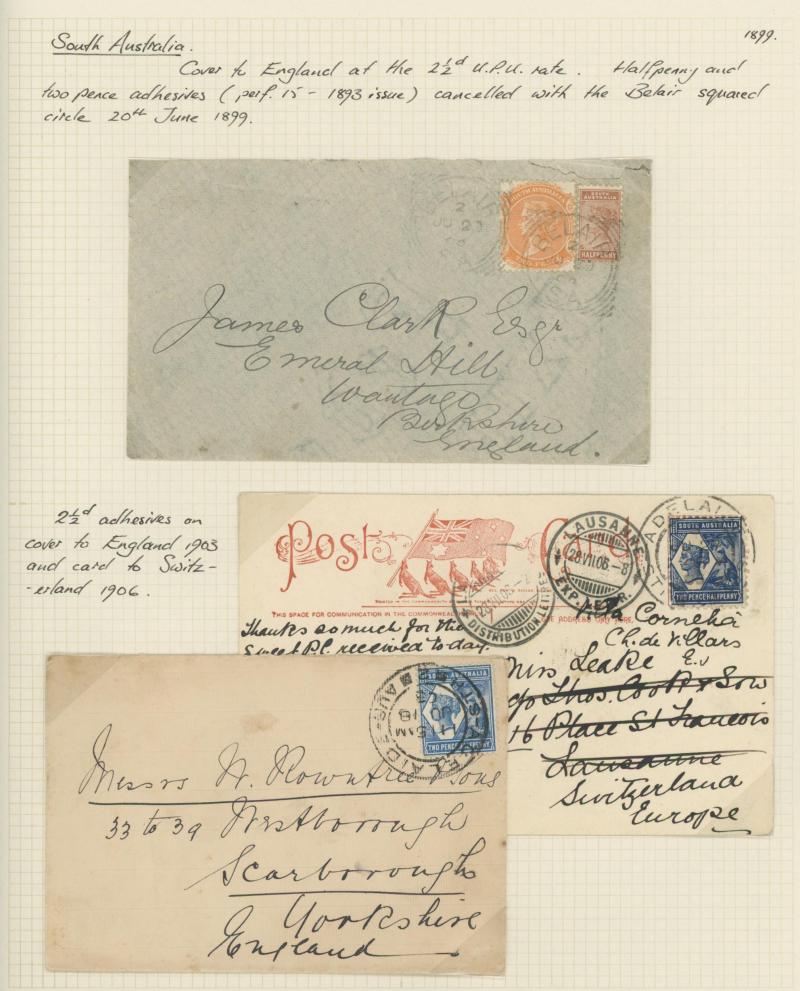 South Australia.
1899.
Cover to England at the 2½d U.P.U. rate. Halfpenny and
two pence adhesives (perf. 15 - 1893 issue) cancelled with the Belair squared
circle 20th June 1899.
BELAIR
2
JU 20
SOUTH AUSTRALIA
TWO PENCE
SOUTH AUSTRALIA
HALFPENNY
BELAIR
James Clark Esqr
Emeral Hill
Wantage
Berkshire
England.
2½d adhesives on
cover to England 1903
and card to Switz-
-erland 1906.
Post Card
LAUSANNE
28.VII.06.-8
EXP. LETTR.
ADELAIDE
SOUTH AUSTRALIA
TWO PENCE HALFPENNY
DISTRIBUTION
THIS SPACE FOR COMMUNICATION IN THE COMMONWEALTH
THE ADDRESS ONLY HERE.
Thanks so much for the
sweet P.C. received to-day.
Cornelia
Ch. de Villars
Miss Leake
c/o Thos. Cook & Son
16 Place St Francois
Lausanne
Switzerland
Europe
ADELAIDE
11.45 AM
JU 18
SOUTH AUSTRALIA
TWO PENCE HALFPENNY
Messrs W. Rowntree & Sons
33 to 39 Westborough
Scarborough
Yorkshire
England